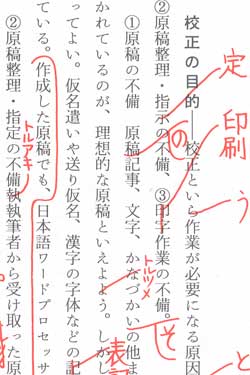 校正の目的――校正といら作業が必要になる原因
②原稿整理・指示の不備、③印字作業の不備。
①原稿の不備　原稿記事、文字、かなづかいの他ま
かれているのが、理想的な原稿といえよよう。しかし
ってよい。仮名遣いや送り仮名、漢字の字体などの記
ている。作成した原稿でも、日本語ワードプロセッサ
②原稿整理・指定の不備執執筆者から受け取った原
定
印刷
う
の
トルツメ
そ
表
トルアキ